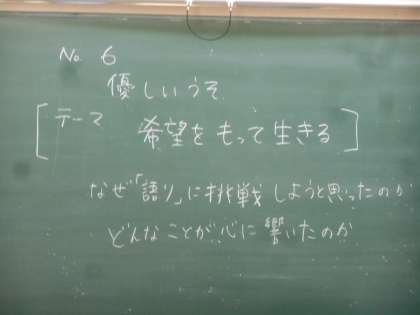 No. 6
優しいうそ
[テーマ 希望をもって生きる]
なぜ「語り」に挑戦しようと思ったのか
どんなことが心に響いたのか